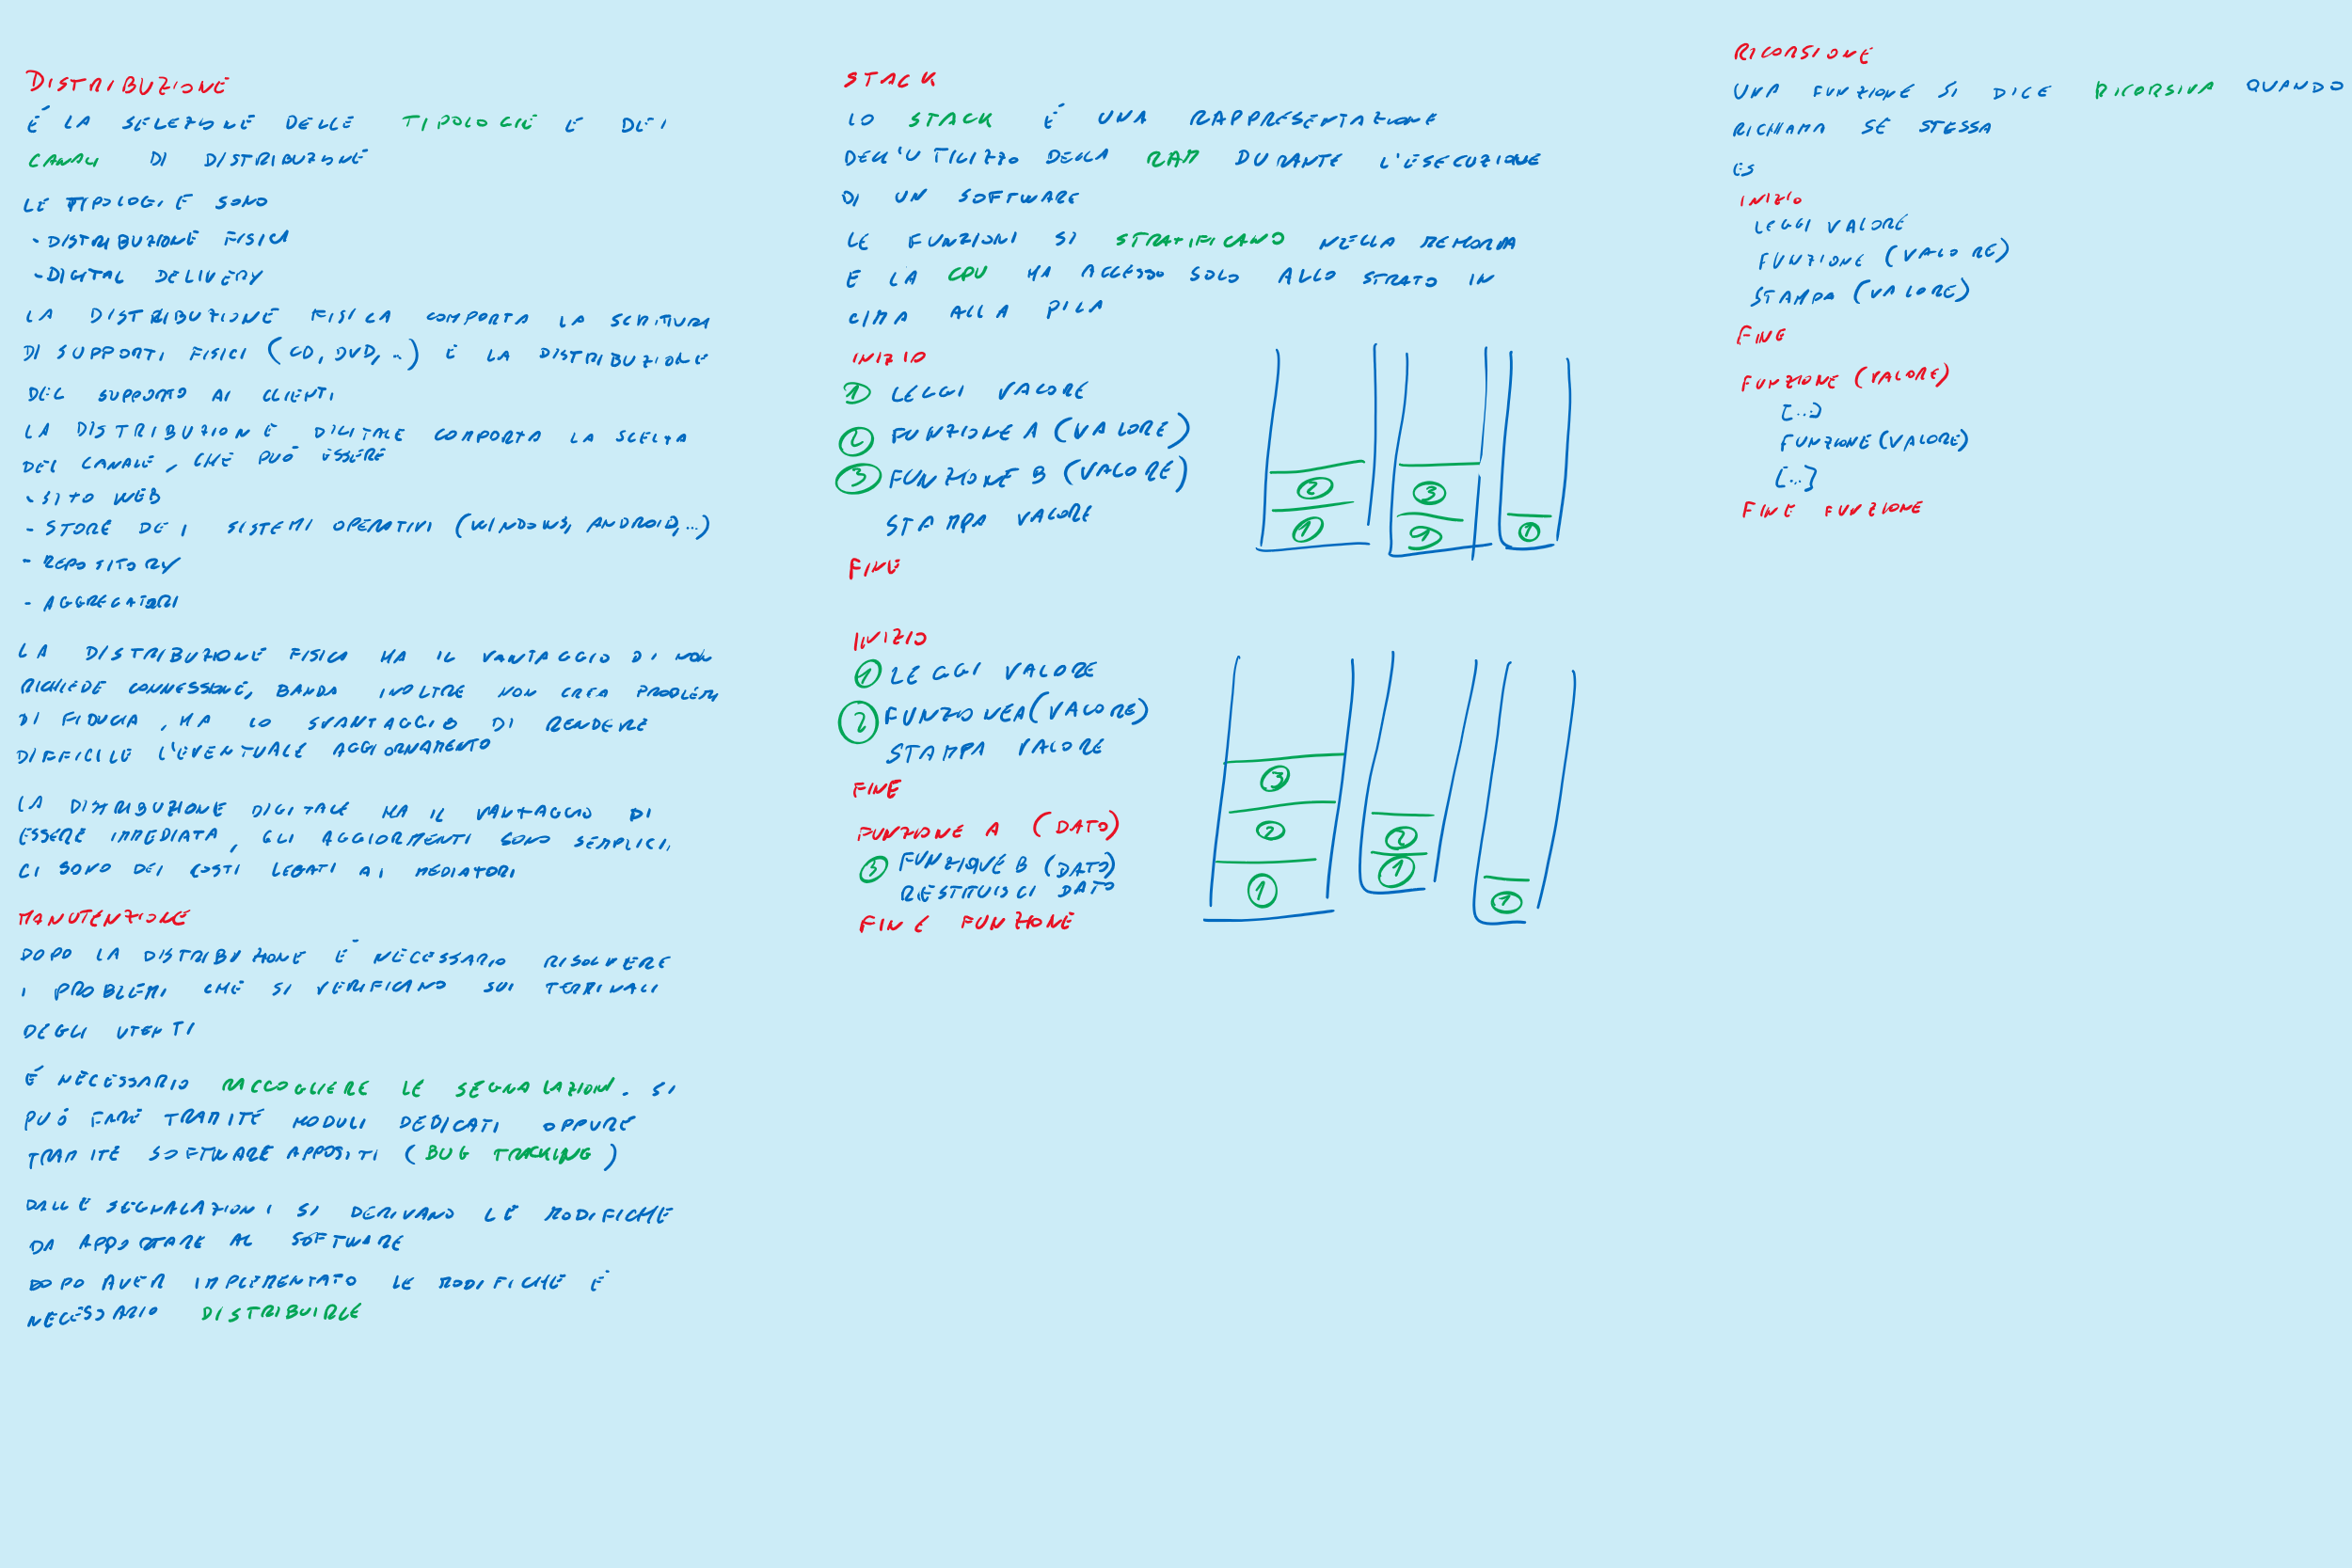 DISTRIBUZIONE
É LA SELEZIONE DELLE TIPOLOGIE E DEI
CANALI DI DISTRIBUZIONE
LE TIPOLOGIE SONO
- DISTRIBUZIONE FISICA
- DIGITAL DELIVERY
LA DISTRIBUZIONE FISICA COMPORTA LA SCRITTURA
DI SUPPORTI FISICI (CD, DVD, ..) E LA DISTRIBUZIONE
DEL SUPPORTO AI CLIENTI
LA DISTRIBUZIONE DIGITALE COMPORTA LA SCELTA
DEL CANALE, CHE PUÓ ESSERE
- SITO WEB
- STORE DEI SISTEMI OPERATIVI (WINDOWS, ANDROID,...)
- REPOSITORY
- AGGREGATORI
LA DISTRIBUZIONE FISICA HA IL VANTAGGIO DI NON
RICHIEDE CONNESSIONE, BANDA INOLTRE NON CREA PROBLEMI
DI FIDUCIA, HA LO SVANTAGGIO DI RENDERE
DIFFICILE L'EVENTUALE AGGIORNAMENTO
LA DISTRIBUZIONE DIGITALE HA IL VANTAGGIO DI
ESSERE IMMEDIATA, GLI AGGIORMENTI SONO SEMPLICI,
CI SONO DEI COSTI LEGATI AI MEDIATORI
MANUTENZIONE
DOPO LA DISTRIBUZIONE É NECESSARIO RISOLVERE
I PROBLEMI CHE SI VERIFICANO SUI TERMINALI
DEGLI UTENTI
É NECESSARIO RACCOGLIERE LE SEGNALAZIONI. SI
PUÓ FARE TRAMITE MODULI DEDICATI OPPURE
TRAMITE SOFTWARE APPOSITI (BUG TRACKING)
DALLE SEGNALAZIONI SI DERIVANO LE MODIFICHE
DA APPORTARE AL SOFTWARE
DOPO AVER IMPLEMENTATO LE MODIFICHE É
NECESSARIO DISTRIBUIRLE
STACK
LO STACK É UNA RAPPRESENTAZIONE
DELL'UTILIZZO DELLA RAM DURANTE L'ESECUZIONE
DI UN SOFTWARE
LE FUNZIONI SI STRATIFICANO NELLA MEMORIA
E LA CPU HA ACCESSO SOLO ALLO STRATO IN
CIMA ALLA PILA
INIZIO
1 LEGGI VALORE
2 FUNZIONE A (VALORE)
3 FUNZIONE B (VALORE)
STAMPA VALORE
FINE
2 3
1 1 1
INIZIO
1 LEGGI VALORE
2 FUNZIONEA(VALORE)
STAMPA VALORE
FINE
FUNZIONE A (DATO)
3 FUNZIONE B (DATO)
RESTITUISCI DATO
FINE FUNZIONE
3
2 2
1 1 1
RICORSIONE
UNA FUNZIONE SI DICE RICORSIVA QUANDO
RICHIAMA SE STESSA
ES
INIZIO
LEGGI VALORE
FUNZIONE (VALORE)
STAMPA (VALORE)
FINE
FUNZIONE (VALORE)
[...]
FUNZIONE (VALORE)
[...]
FINE FUNZIONE